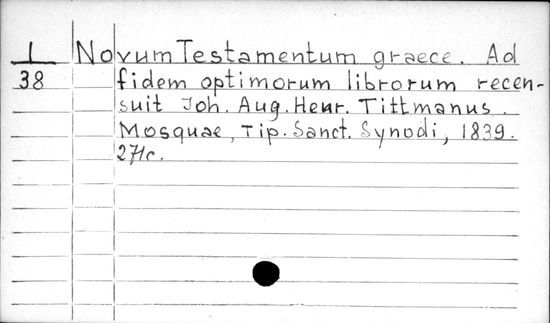 I Novum Testamentum graece. Ad
38 fidem optimorum librorum recen-
suit Joh. Aug. Henr. Tittmanus.
Mosquae, Tip. Sanct. Synodi, 1839.
271c.